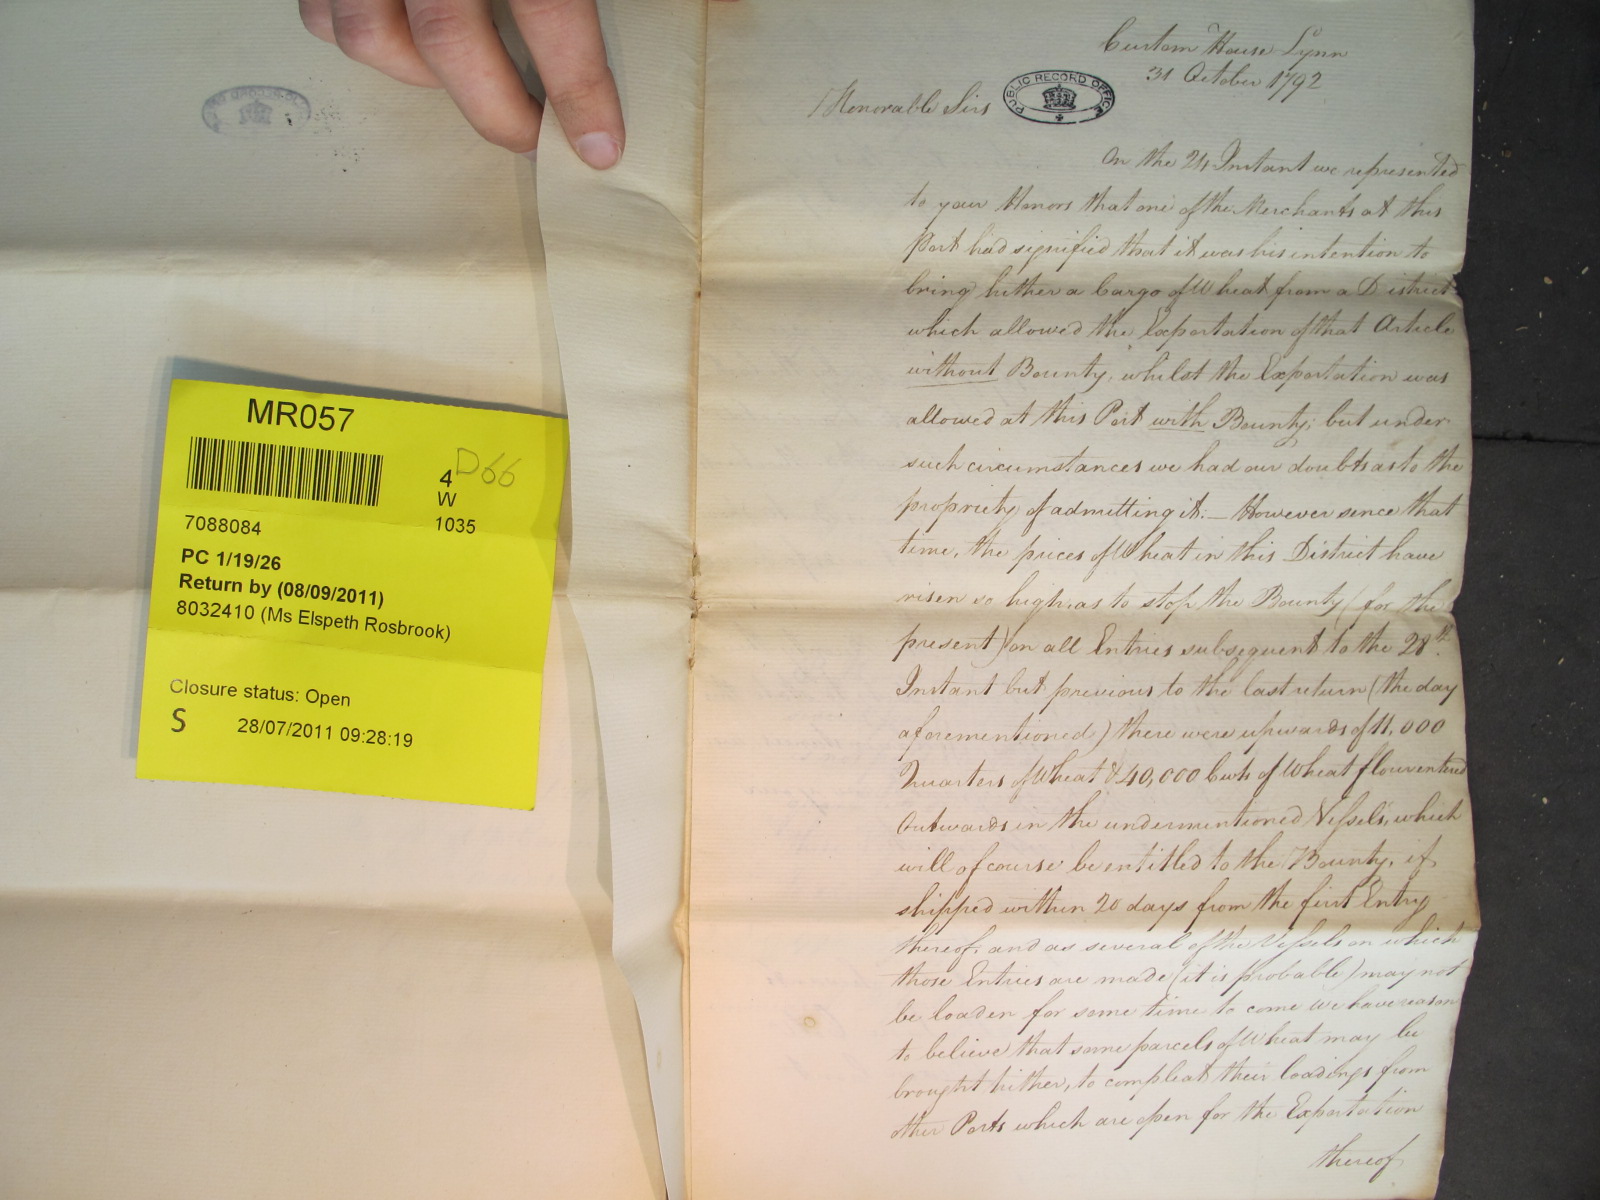 MR057
D66
4
W
7088084
1035
PC 1/19/26
Return by (08/09/2011)
8032410 (Ms Elspeth Rosbrook)
Closure status: Open
S 28/07/2011 09:28:19
Custom House Lynn
31 October 1792
PUBLIC RECORD OFFICE
Honorable Sirs
On the 24 Instant we represented
to your Honors that one of the Merchants at this
Port had signified that it was his intention to
bring hither a Cargo of Wheat from a District
which allowed the Exportation of that Article
without Bounty, whilst the Exportation was
allowed at this Port with Bounty; but under
such circumstances we had our doubts as to the
propriety of admitting it:— However since that
time, the prices of Wheat in this District have
risen so high, as to stop the Bounty (for the
present) on all Entries subsequent to the 28th.
Instant but previous to the last return (the day
aforementioned) there were upwards of 11,000
Quarters of Wheat & 40,000 Cwts of Wheat flour entered
Outwards in the undermentioned Vessels, which
will of course be entitled to the Bounty, if
shipped within 20 days from the first Entry
thereof, and as several of the Vessels on which
those Entries are made (it is probable) may not
be loaden for some time to come we have reason
to believe that some parcels of Wheat may be
brought hither, to compleat their loadings from
other Ports which are open for the Exportation
thereof